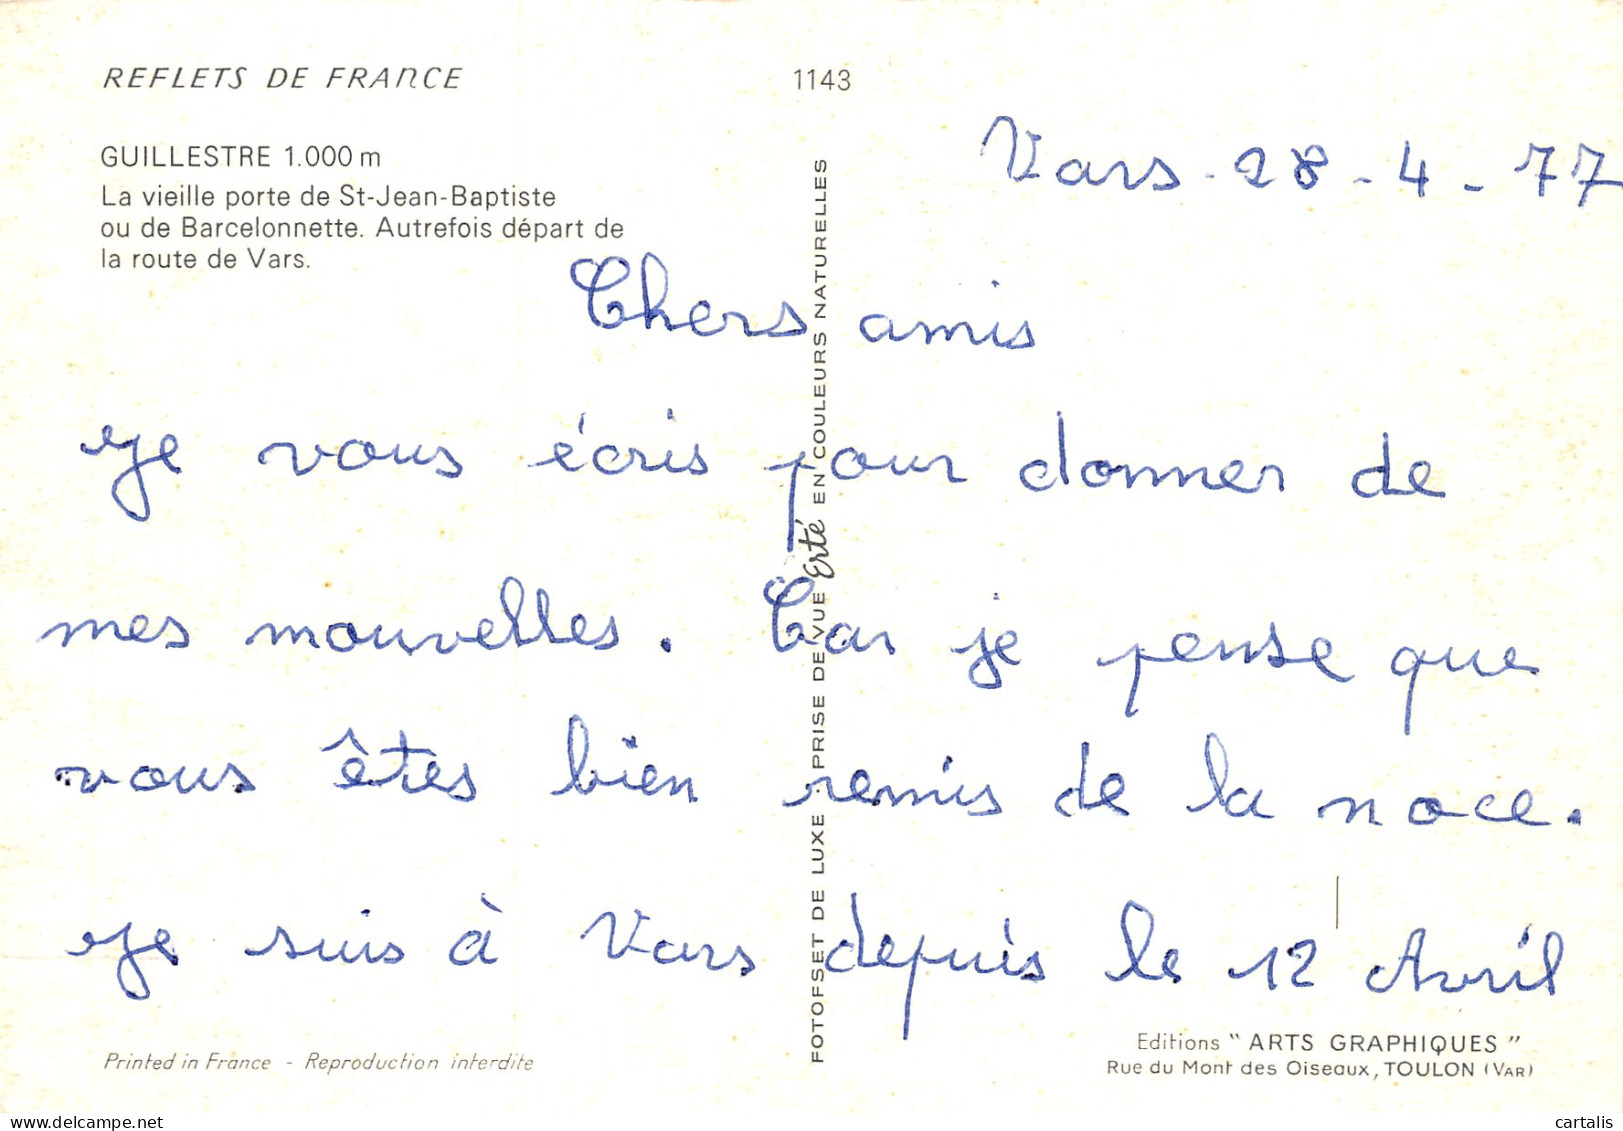 REFLETS DE FRANCE
1143
GUILLESTRE 1.000 m
La vieille porte de St-Jean-Baptiste
ou de Barcelonnette. Autrefois départ de
la route de Vars.
Vars - 28 - 4 - 77
Chers amis
Je vous écris pour donner de
mes nouvelles. Car je pense que
vous êtes bien remis de la noce.
Je suis à Vars depuis le 12 Avril
FOTOFSET DE LUXE . PRISE DE VUE Erté EN COULEURS NATURELLES
Printed in France - Reproduction interdite
Editions " ARTS GRAPHIQUES "
Rue du Mont des Oiseaux, TOULON (VAR)
cartalis